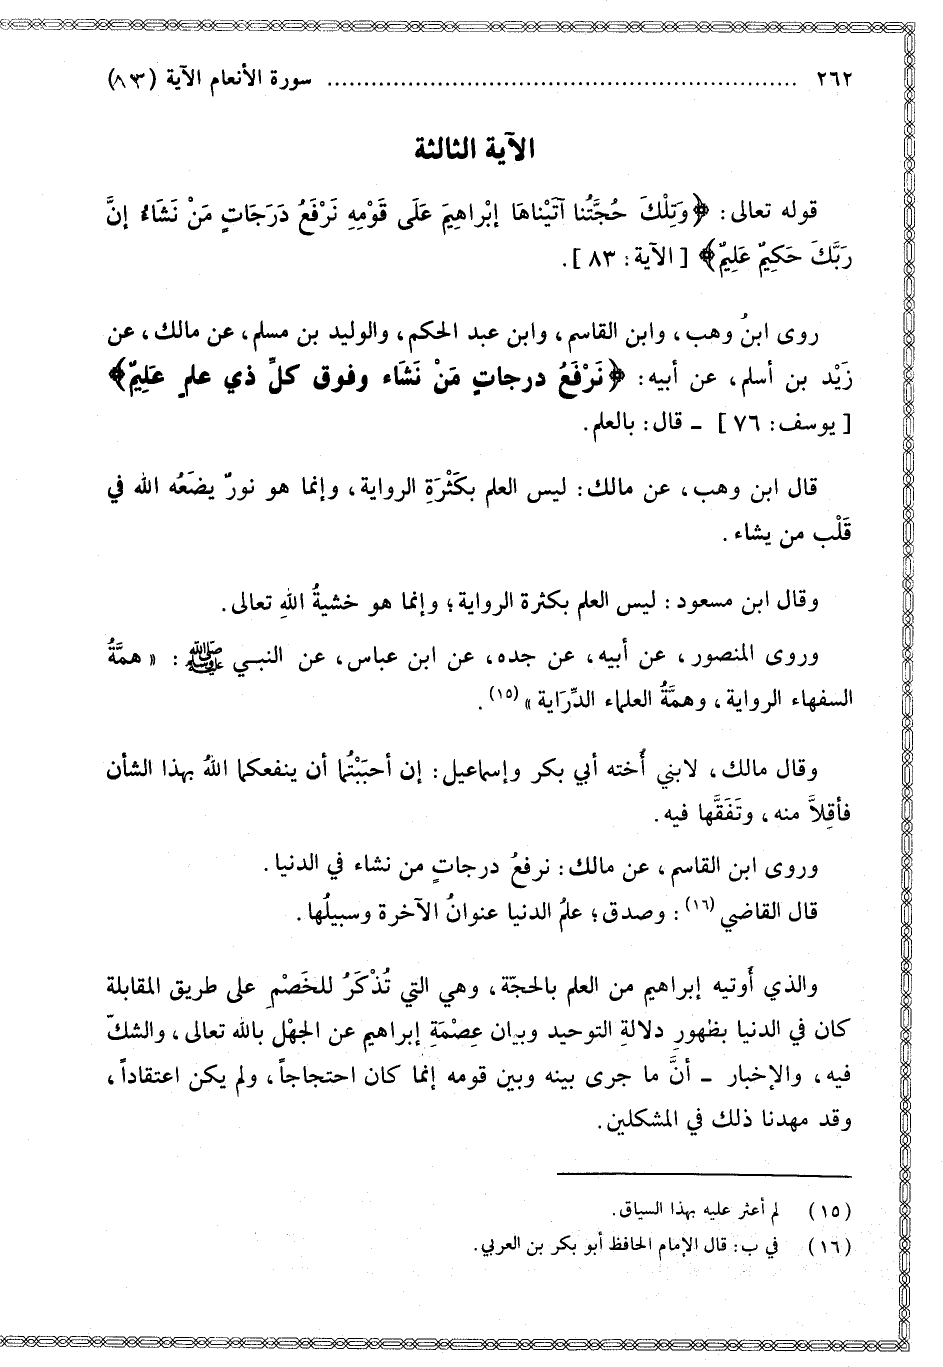 ٢٦٢ ................................................................ سورة الأنعام الآية (٨٣)
الآية الثالثة
قوله تعالى: ﴿وَتِلْكَ حُجَّتُنا آتَيْناهَا إبْراهِيمَ عَلَى قَوْمِهِ نَرْفَعُ دَرَجَاتٍ مَنْ نَشَاءُ إنَّ
رَبَّكَ حَكِيمٌ عَلِيمٌ﴾ [الآية: ٨٣].
روى ابنُ وهب، وابن القاسم، وابن عبد الحكم، والوليد بن مسلم، عن مالك، عن
زَيْد بن أسلم، عن أبيه: ﴿نَرْفَعُ درجاتٍ مَنْ نَشَاء وفوق كلِّ ذي علمٍ عَلِيمٌ﴾
[يوسف: ٧٦] ـ قال: بالعلم.
قال ابن وهب، عن مالك: ليس العلم بكَثْرَةِ الرواية، وإنما هو نورٌ يضَعُه الله في
قَلْب من يشاء.
وقال ابن مسعود: ليس العلم بكثرة الرواية؛ وإنما هو خشيةُ اللهِ تعالى.
وروى المنصور، عن أبيه، عن جده، عن ابن عباس، عن النبي ﷺ: «همَّةُ
السفهاء الرواية، وهمَّةُ العلماء الدِّرَاية»(١٥).
وقال مالك، لابني أُخته أبي بكر وإسماعيل: إن أحبَبْتُما أن ينفعكما اللهُ بهذا الشأن
فأقِلاَّ منه، وتَفَقَّها فيه.
وروى ابن القاسم، عن مالك: نرفعُ درجاتٍ من نشاء في الدنيا.
قال القاضي(١٦): وصدق؛ علمُ الدنيا عنوانُ الآخرة وسبيلُها.
والذي أُوتيه إبراهيم من العلم بالحجّة، وهي التي تُذْكَرُ للخَصْمِ على طريق المقابلة
كان في الدنيا بظهورِ دلالةِ التوحيد وبيان عِصْمَةِ إبراهيم عن الجهْل بالله تعالى، والشكّ
فيه، والإخبار ـ أنَّ ما جرى بينه وبين قومه إنما كان احتجاجاً، ولم يكن اعتقاداً،
وقد مهدنا ذلك في المشكلين.
(١٥) لم أعثر عليه بهذا السياق.
(١٦) في ب: قال الإمام الحافظ أبو بكر بن العربي.